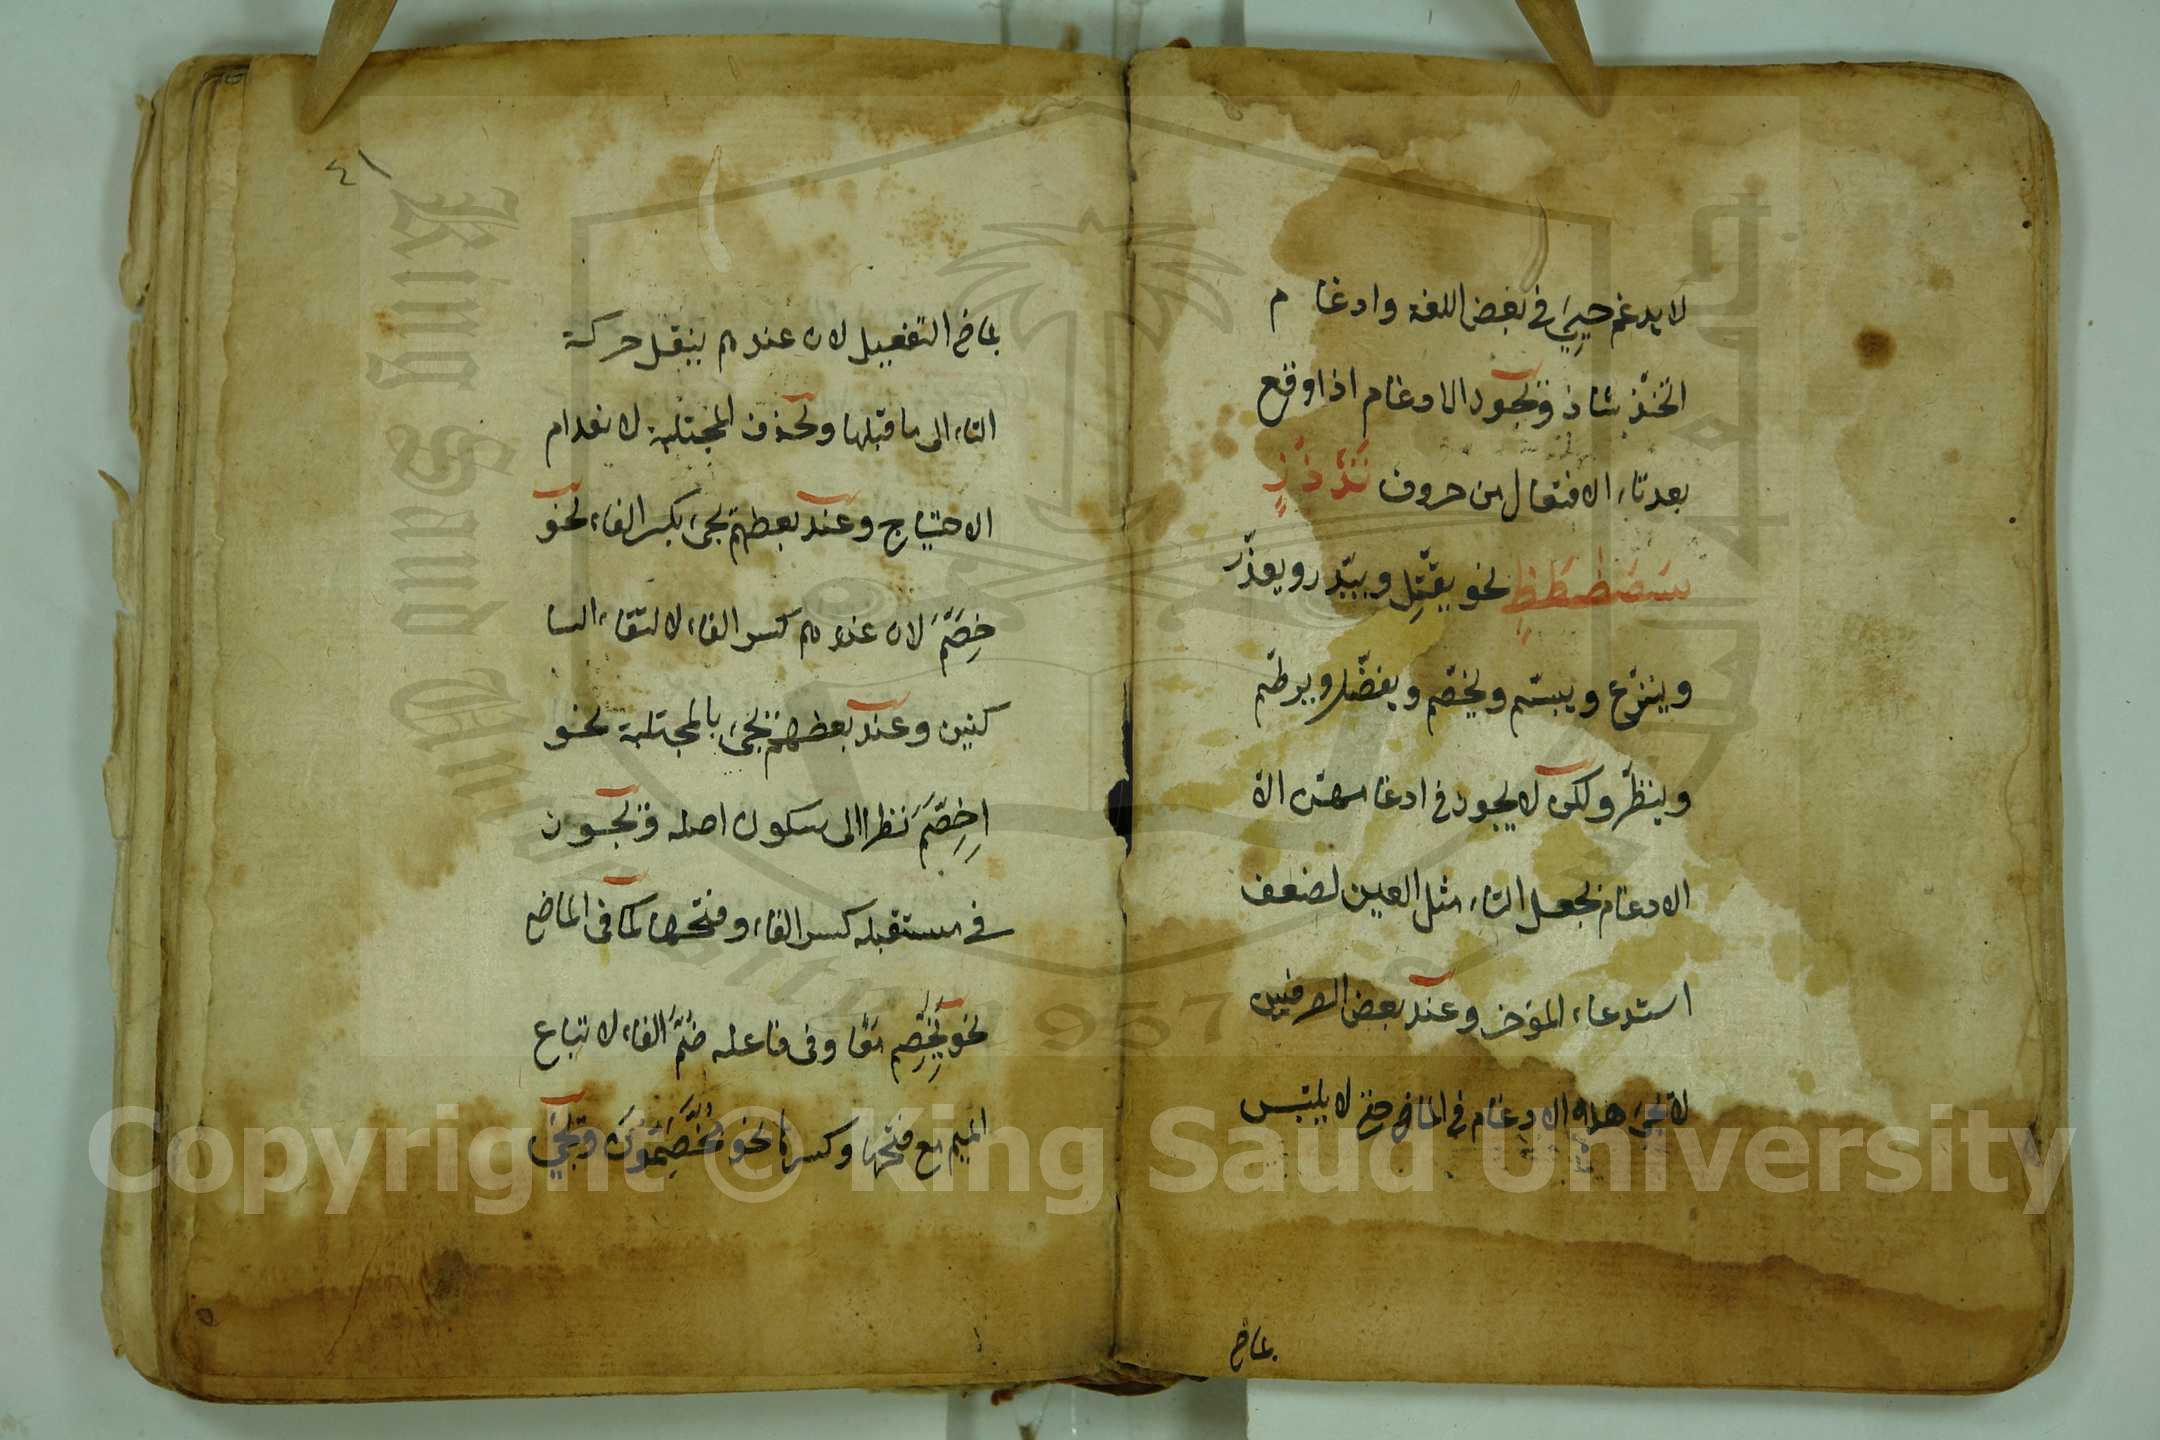 لا يدغم حيي في بعض اللغة وادغا م
اتخذ شاذ ويجوز الادغام اذا وقع
بعد تاء الافتعال من حروف تدذز
سصضطظ نحو يقتل ويبدر ويعذر
وينزع ويبسم ويخصم ويفضل ويرطم
وينظر ولكن لا يجوز في ادغامهن الا
الادغام بجعل التاء مثل العين لضعف
استدعاء المؤخر وعند بعض الصرفيين
لا يجئ هذه الادغام في الماضي حتى لا يلتبس
بماضي
٤١
بماضي التفعيل لان عندهم ينقل حركة
التاء الى ما قبلها وتحذف المجتلبة لانعدام
الاحتياج وعند بعضهم يجئ بكسر الفاء نحو
خِصَّمَ لان عندهم كسر الفاء لالتقاء السا
كنين وعند بعضهم يجئ بالمجتلبة نحو
اِخِصَّمَ نظرا الى سكون اصله ويجوز
في مستقبله كسر الفاء وفتحها كما في الماضي
نحو يخصم وفي فاعله ضم الفاء لاتباع
الميم مع فتحها وكسرها نحو مخصمون ويجئ
King Saud University
1957
Copyright © King Saud University